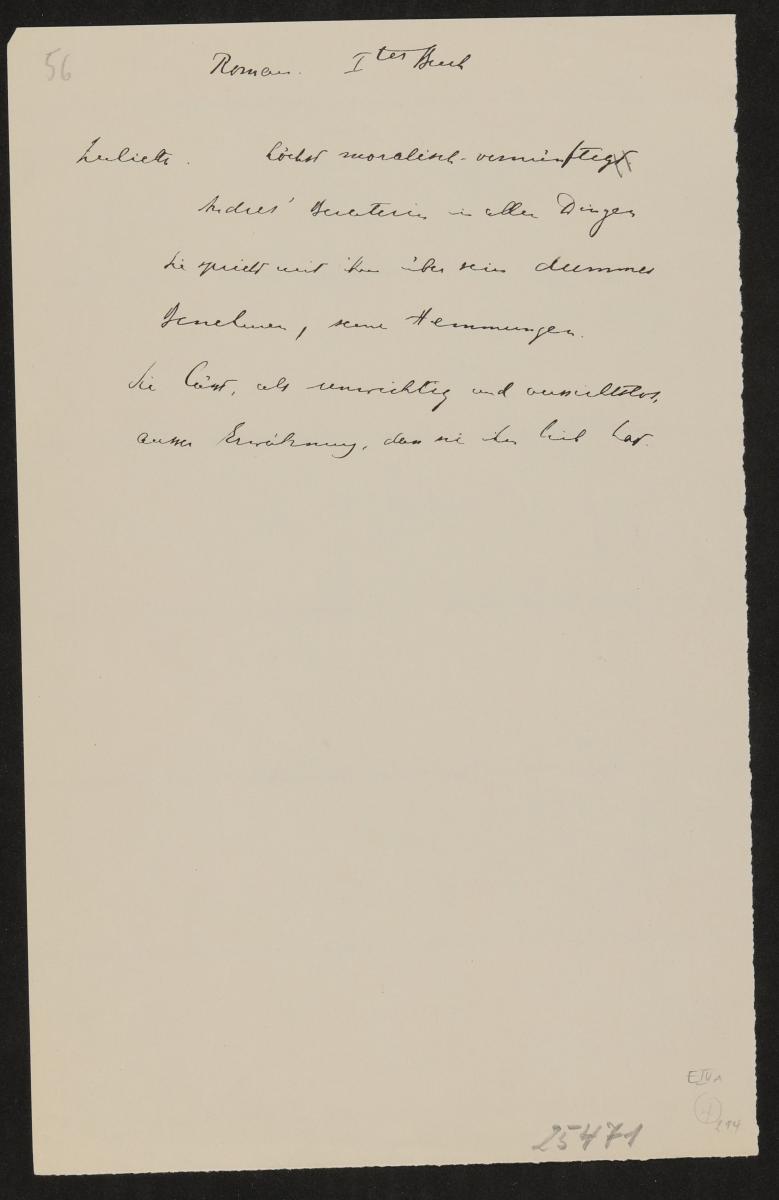 56
Roman. I tes Buch
höchst moralisch-vernünftig
Andres' Beraterin in allen Dingen
Sie spricht mit ihm über sein dummes
Benehmen, seine Hemmungen.
Sie lässt, als unwichtig und aussichtslos,
ausser Erwähnung, dass sie ihn lieb hat.
E IV
4
25471